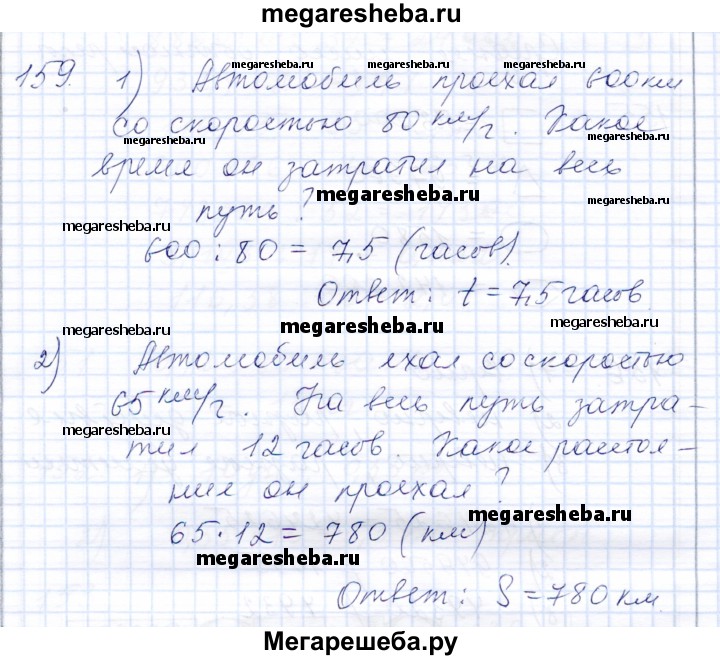 megaresheba.ru
159. 1) Автомобиль проехал 600 км
megaresheba.ru megaresheba.ru megaresheba.ru
со скоростью 80 км/г. Какое
megaresheba.ru megaresheba.ru
время он затратил на весь
megaresheba.ru
путь?
megaresheba.ru megaresheba.ru
600 : 80 = 7,5 (часов).
Ответ: t = 7,5 часов
megaresheba.ru megaresheba.ru megaresheba.ru
2) Автомобиль ехал со скоростью
65 км/г. На весь путь затра-
megaresheba.ru megaresheba.ru
тил 12 часов. Какое растоя-
ние он проехал?
megaresheba.ru
65 · 12 = 780 (км)
megaresheba.ru
Ответ: S = 780 км.
Мегарешеба.ру